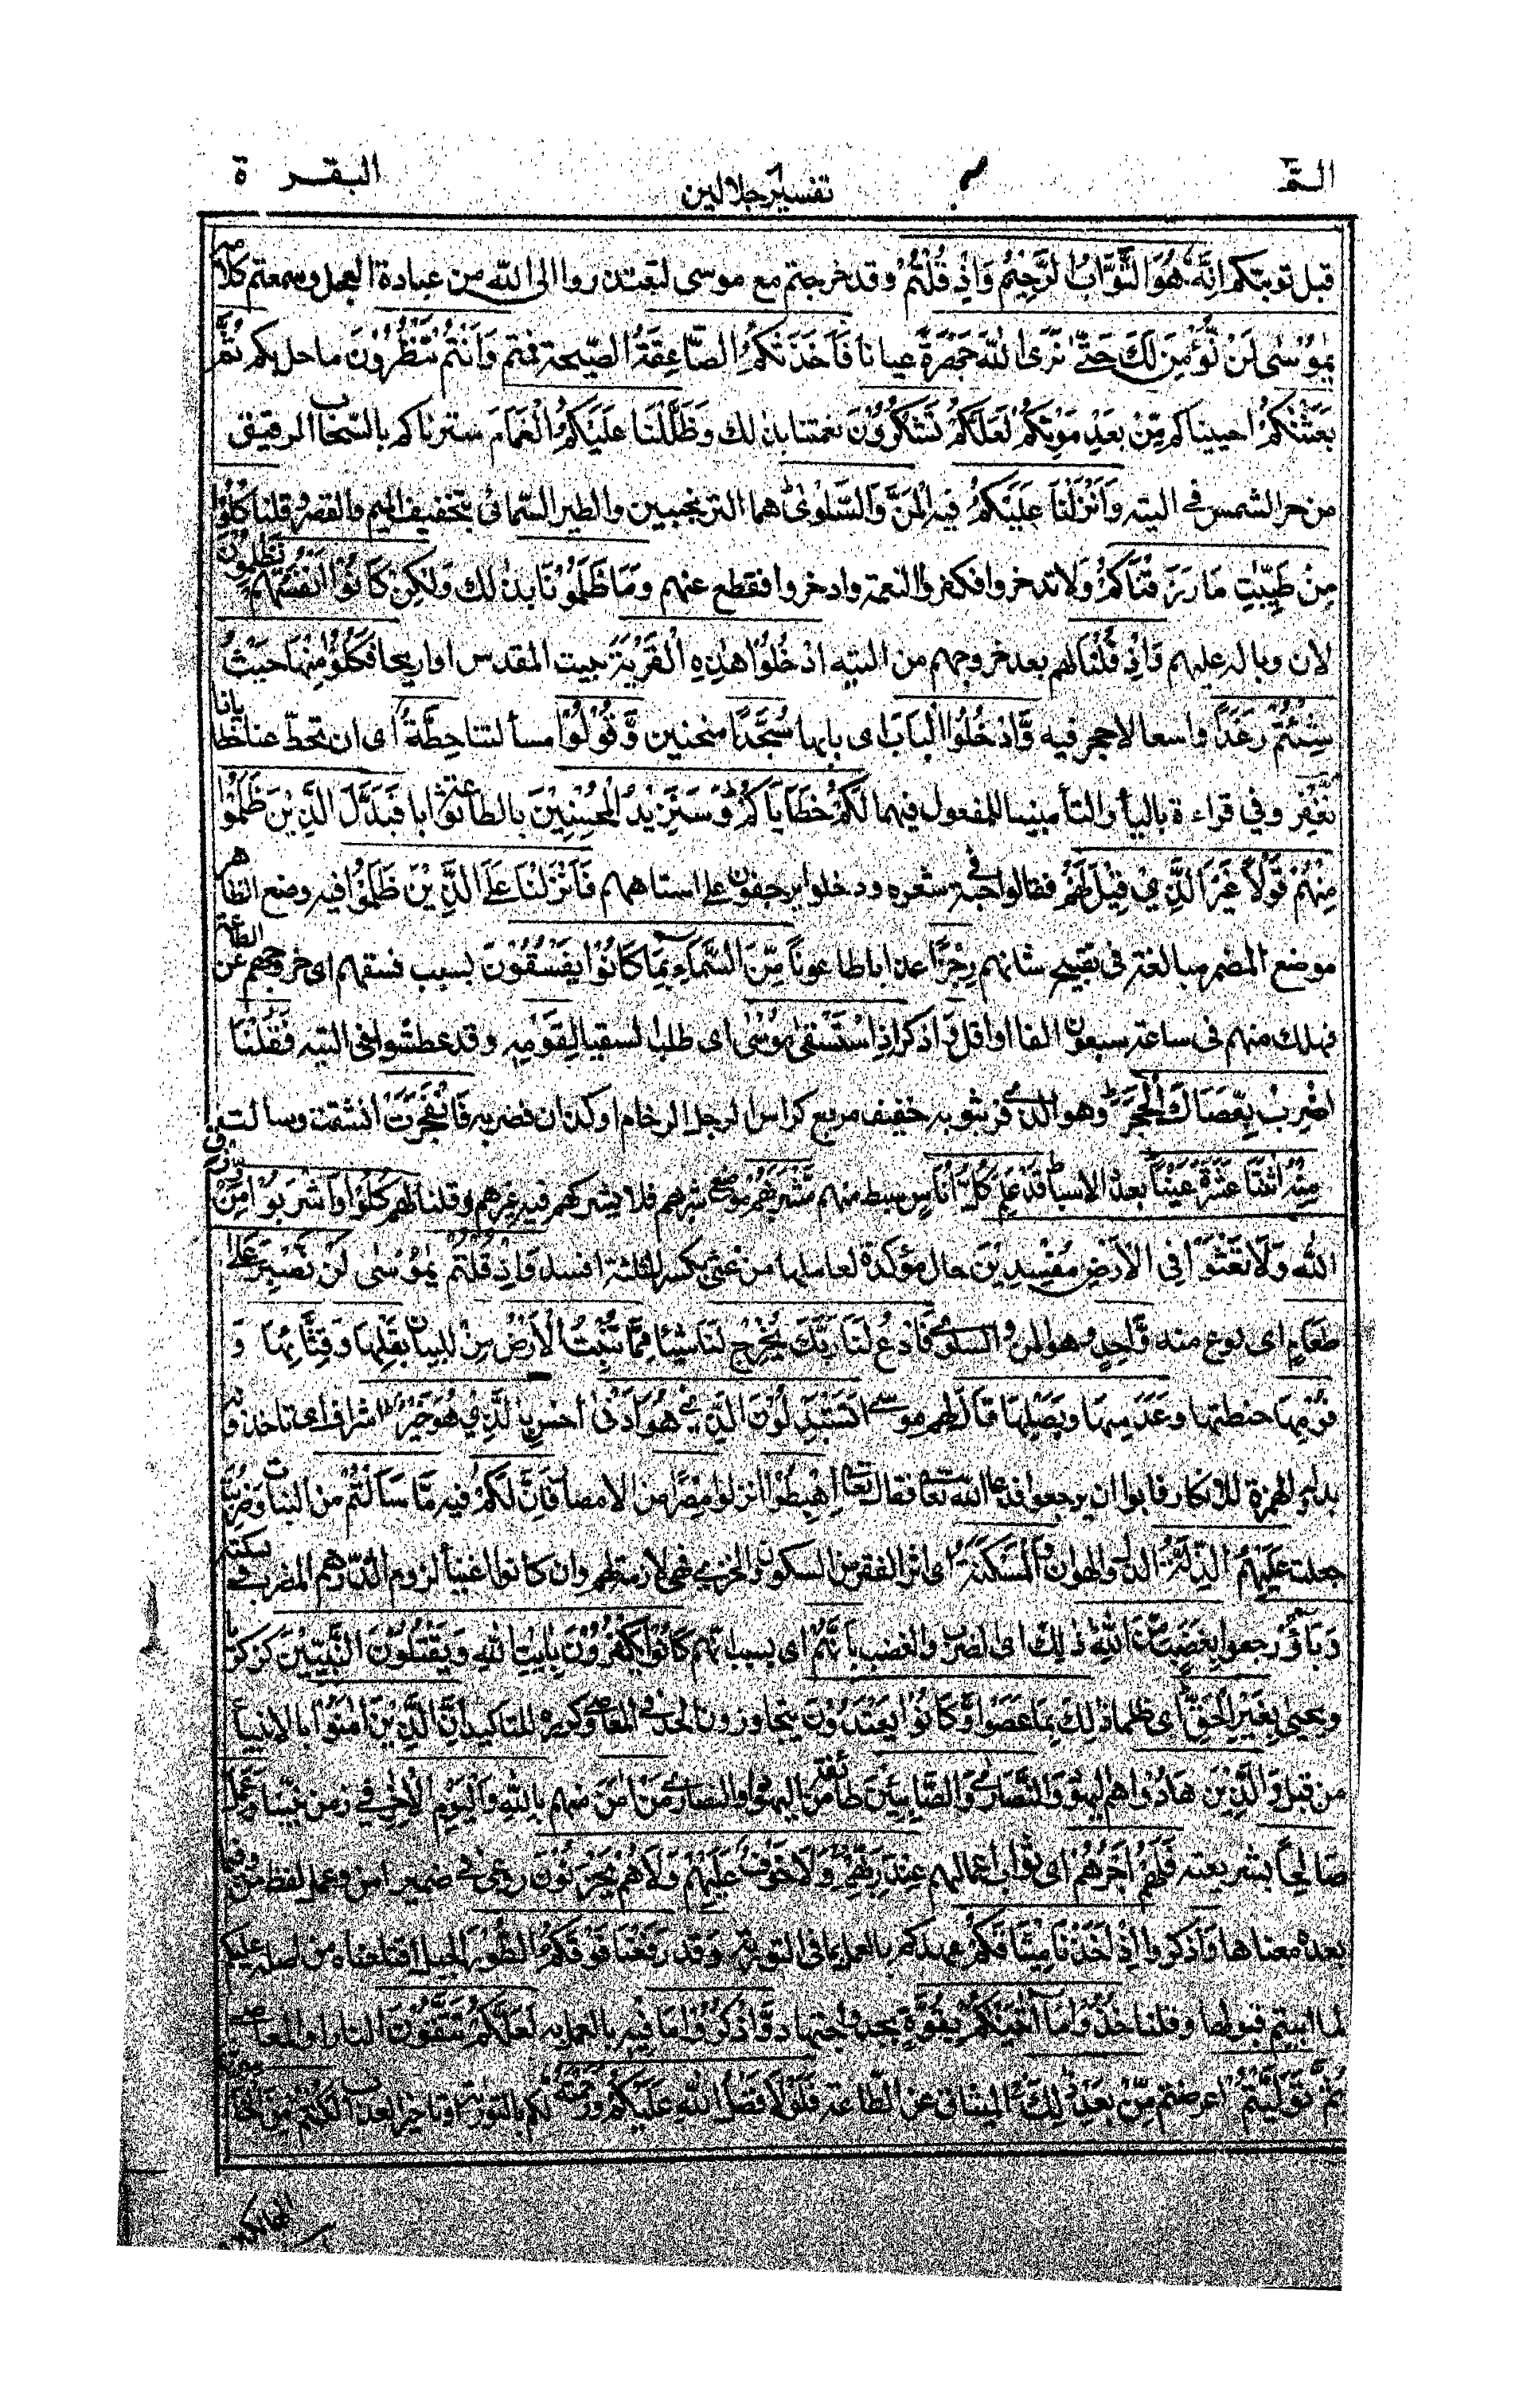 الٓمّ
تفسير جلالين
البقرة
قبل توبتكم اِنَّهٗ هُوَ التَّوَّابُ الرَّحِيْمُ وَاِذْ قُلْتُمْ وقد خرجتم مع موسى لتعتذروا الى الله من عبادة العجل وسمعتم كلامه
يٰمُوْسٰى لَنْ نُّؤْمِنَ لَكَ حَتّٰى نَرَى اللّٰهَ جَهْرَةً عيانا فَاَخَذَتْكُمُ الصّٰعِقَةُ الصيحة فمتم وَاَنْتُمْ تَنْظُرُوْنَ ما حل بكم ثُمَّ
بَعَثْنٰكُمْ احييناكم مِّنْ بَعْدِ مَوْتِكُمْ لَعَلَّكُمْ تَشْكُرُوْنَ نعمتنا بذلك وَظَلَّلْنَا عَلَيْكُمُ الْغَمَامَ سترناكم بالسحاب الرقيق
من حر الشمس في التيه وَاَنْزَلْنَا عَلَيْكُمُ فيه الْمَنَّ وَالسَّلْوٰى هما الترنجبين والطير السمانى بتخفيف الميم والقصر وقلنا كُلُوْا
مِنْ طَيِّبٰتِ مَا رَزَقْنٰكُمْ ولا تدخروا فكفروا النعمة وادخروا فقطع عنهم وَمَا ظَلَمُوْنَا بذلك وَلٰكِنْ كَانُوْا اَنْفُسَهُمْ يَظْلِمُوْنَ
لان وباله عليهم وَاِذْ قُلْنَا لهم بعد خروجهم من التيه ادْخُلُوْا هٰذِهِ الْقَرْيَةَ بيت المقدس او اريحا فَكُلُوْا مِنْهَا حَيْثُ
شِئْتُمْ رَغَدًا واسعا لا حجر فيه وَّادْخُلُوا الْبَابَ اى بابها سُجَّدًا منحنين وَّقُوْلُوْا مسألتنا حِطَّةٌ اى ان تحط عنا خطايانا
نَّغْفِرْ وفي قراءة بالياء والتاء مبنيا للمفعول فيهما لَكُمْ خَطٰيٰكُمْ وَسَنَزِيْدُ الْمُحْسِنِيْنَ بالطاعة ثوابا فَبَدَّلَ الَّذِيْنَ ظَلَمُوْا
مِنْهُمْ قَوْلًا غَيْرَ الَّذِيْ قِيْلَ لَهُمْ فقالوا حبة في شعرة ودخلوا يزحفون على استاههم فَاَنْزَلْنَا عَلَى الَّذِيْنَ ظَلَمُوْا فيه وضع الظاهر
موضع المضمر مبالغة في تقبيح شانهم رِجْزًا عذابا طاعونا مِّنَ السَّمَآءِ بِمَا كَانُوْا يَفْسُقُوْنَ بسبب فسقهم اى خروجهم عن الطاعة
فهلك منهم في ساعة سبعون الفا او اقل وَ اذكر اِذِ اسْتَسْقٰى مُوْسٰى اى طلب السقيا لِقَوْمِهٖ وقد عطشوا في التيه فَقُلْنَا
اضْرِبْ بِّعَصَاكَ الْحَجَرَ وهو الذى فر بثوبه خفيف مربع كراس الرجل رخام او كذان فضربه فَانْفَجَرَتْ انشقت وسالت
مِنْهُ اثْنَتَا عَشْرَةَ عَيْنًا بعدد الاسباط قَدْ عَلِمَ كُلُّ اُنَاسٍ سبط منهم مَّشْرَبَهُمْ موضع شربهم فلا يشركهم فيه غيرهم وقلنا لهم كُلُوْا وَاشْرَبُوْا مِنْ رِّزْقِ
اللّٰهِ وَلَا تَعْثَوْا فِى الْاَرْضِ مُفْسِدِيْنَ حال مؤكدة لعاملها من عثى بكسر المثلثة افسد وَاِذْ قُلْتُمْ يٰمُوْسٰى لَنْ نَّصْبِرَ عَلٰى
طَعَامٍ اى نوع منه وَّاحِدٍ وهو المن والسلوى فَادْعُ لَنَا رَبَّكَ يُخْرِجْ لَنَا شيئا مِمَّا تُنْبِتُ الْاَرْضُ مِنْ للبيان بَقْلِهَا وَقِثَّآئِهَا وَ
فُوْمِهَا حنطتها وَعَدَسِهَا وَبَصَلِهَا قَالَ لهم موسى اَتَسْتَبْدِلُوْنَ الَّذِيْ هُوَ اَدْنٰى اخس بِالَّذِيْ هُوَ خَيْرٌ اشرف اى تاخذونه
بدله والهمزة للانكار فابوا ان يرجعوا فدعا الله تعالى فقال تعالى اِهْبِطُوْا انزلوا مِصْرًا من الامصار فَاِنَّ لَكُمْ فيه مَّا سَاَلْتُمْ من النبات وَضُرِبَتْ
جعلت عَلَيْهِمُ الذِّلَّةُ الذل والهوان وَالْمَسْكَنَةُ اى اثر الفقر من السكون والخزى فهي لازمة لهم وان كانوا اغنياء لزوم الدرهم المضروب لسكته
وَبَآؤُ رجعوا بِغَضَبٍ مِّنَ اللّٰهِ ذٰلِكَ اى الضرب والغضب بِاَنَّهُمْ اى بسبب انهم كَانُوْا يَكْفُرُوْنَ بِاٰيٰتِ اللّٰهِ وَيَقْتُلُوْنَ النَّبِيّٖنَ كزكريا
ويحيى بِغَيْرِ الْحَقِّ اى ظلما ذٰلِكَ بِمَا عَصَوْا وَّكَانُوْا يَعْتَدُوْنَ يتجاوزون الحد في المعاصى وكرره للتاكيد اِنَّ الَّذِيْنَ اٰمَنُوْا بالانبياء
من قبل وَالَّذِيْنَ هَادُوْا هم اليهود وَالنَّصٰرٰى وَالصّٰبِئِيْنَ طائفة من اليهود او النصارى مَنْ اٰمَنَ منهم بِاللّٰهِ وَالْيَوْمِ الْاٰخِرِ في زمن نبينا وَعَمِلَ
صَالِحًا بشريعته فَلَهُمْ اَجْرُهُمْ اى ثواب اعمالهم عِنْدَ رَبِّهِمْ وَلَا خَوْفٌ عَلَيْهِمْ وَلَا هُمْ يَحْزَنُوْنَ روعى في ضمير امن وعمل لفظ من وفيما
بعده معناها وَ اذكروا اِذْ اَخَذْنَا مِيْثَاقَكُمْ عهدكم بالعمل بما في التورية وَ قد رَفَعْنَا فَوْقَكُمُ الطُّوْرَ الجبل اقتلعناه من اصله عليكم
لما ابيتم قبولها وقلنا خُذُوْا مَآ اٰتَيْنٰكُمْ بِقُوَّةٍ بجد واجتهاد وَّاذْكُرُوْا مَا فِيْهِ بالعمل به لَعَلَّكُمْ تَتَّقُوْنَ النار او المعاصى
ثُمَّ تَوَلَّيْتُمْ اعرضتم مِّنْ بَعْدِ ذٰلِكَ الميثاق عن الطاعة فَلَوْلَا فَضْلُ اللّٰهِ عَلَيْكُمْ وَرَحْمَتُهٗ لكم بالتوبة او تاخير العذاب لَكُنْتُمْ مِّنَ